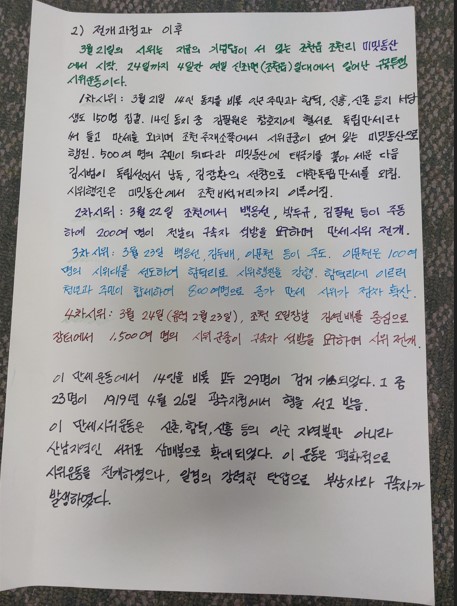 2) 전개과정과 이후
3월 21일의 시위는 지금의 기념탑이 서 있는 조천읍 조천리 미밋동산
에서 시작. 24일까지 4일간 연일 신좌면(조천읍)일대에서 일어난 구국투쟁
시위운동이다.
1차시위 : 3월 21일 14인 동지를 비롯 인근 주민과 함덕, 신흥, 신촌 등지 서당
생도 150명 집결. 14인 동지 중 김필원은 창호지에 혈서로 독립만세라
써 들고 만세를 외치며 조천 주재소쪽에서 시위군중이 모여 있는 미밋동산으로
행진. 500여 명의 주민이 뒤따라 미밋동산에 태극기를 꽂아 세운 다음
김시범이 독립선언서 낭독, 김장환의 선창으로 대한독립만세를 외침.
시위행진은 미밋동산에서 조천 비석거리까지 이루어짐.
2차시위 : 3월 22일 조천에서 백응선, 박두규, 김필원 등이 주동
하에 200여 명이 전날의 구속자 석방을 요구하며 만세시위 전개.
3차시위 : 3월 23일 백응선, 김두배, 이문천 등이 주도. 이문천은 100여
명의 시위대를 선도하여 함덕리로 시위행진을 강행. 함덕리에 이르러
천모와 주민이 합세하여 800여명으로 증가 만세 시위가 점차 확산.
4차시위 : 3월 24일(음력 2월 23일), 조천 오일장날 김연배를 중심으로
장터에서 1,500여 명의 시위 군중이 구속자 석방을 요구하며 시위 전개.
이 만세운동에서 14인을 비롯 모두 29명이 검거 기소되었다. 그 중
23명이 1919년 4월 26일 광주지청에서 형을 선고 받음.
이 만세시위운동은 신촌, 함덕, 신흥 등의 인근 지역뿐만 아니라
산남지역인 서귀포 삼매봉으로 확대되었다. 이 운동은 평화적으로
시위운동을 전개하였으나, 일경의 강력한 탄압으로 부상자와 구속자가
발생하였다.